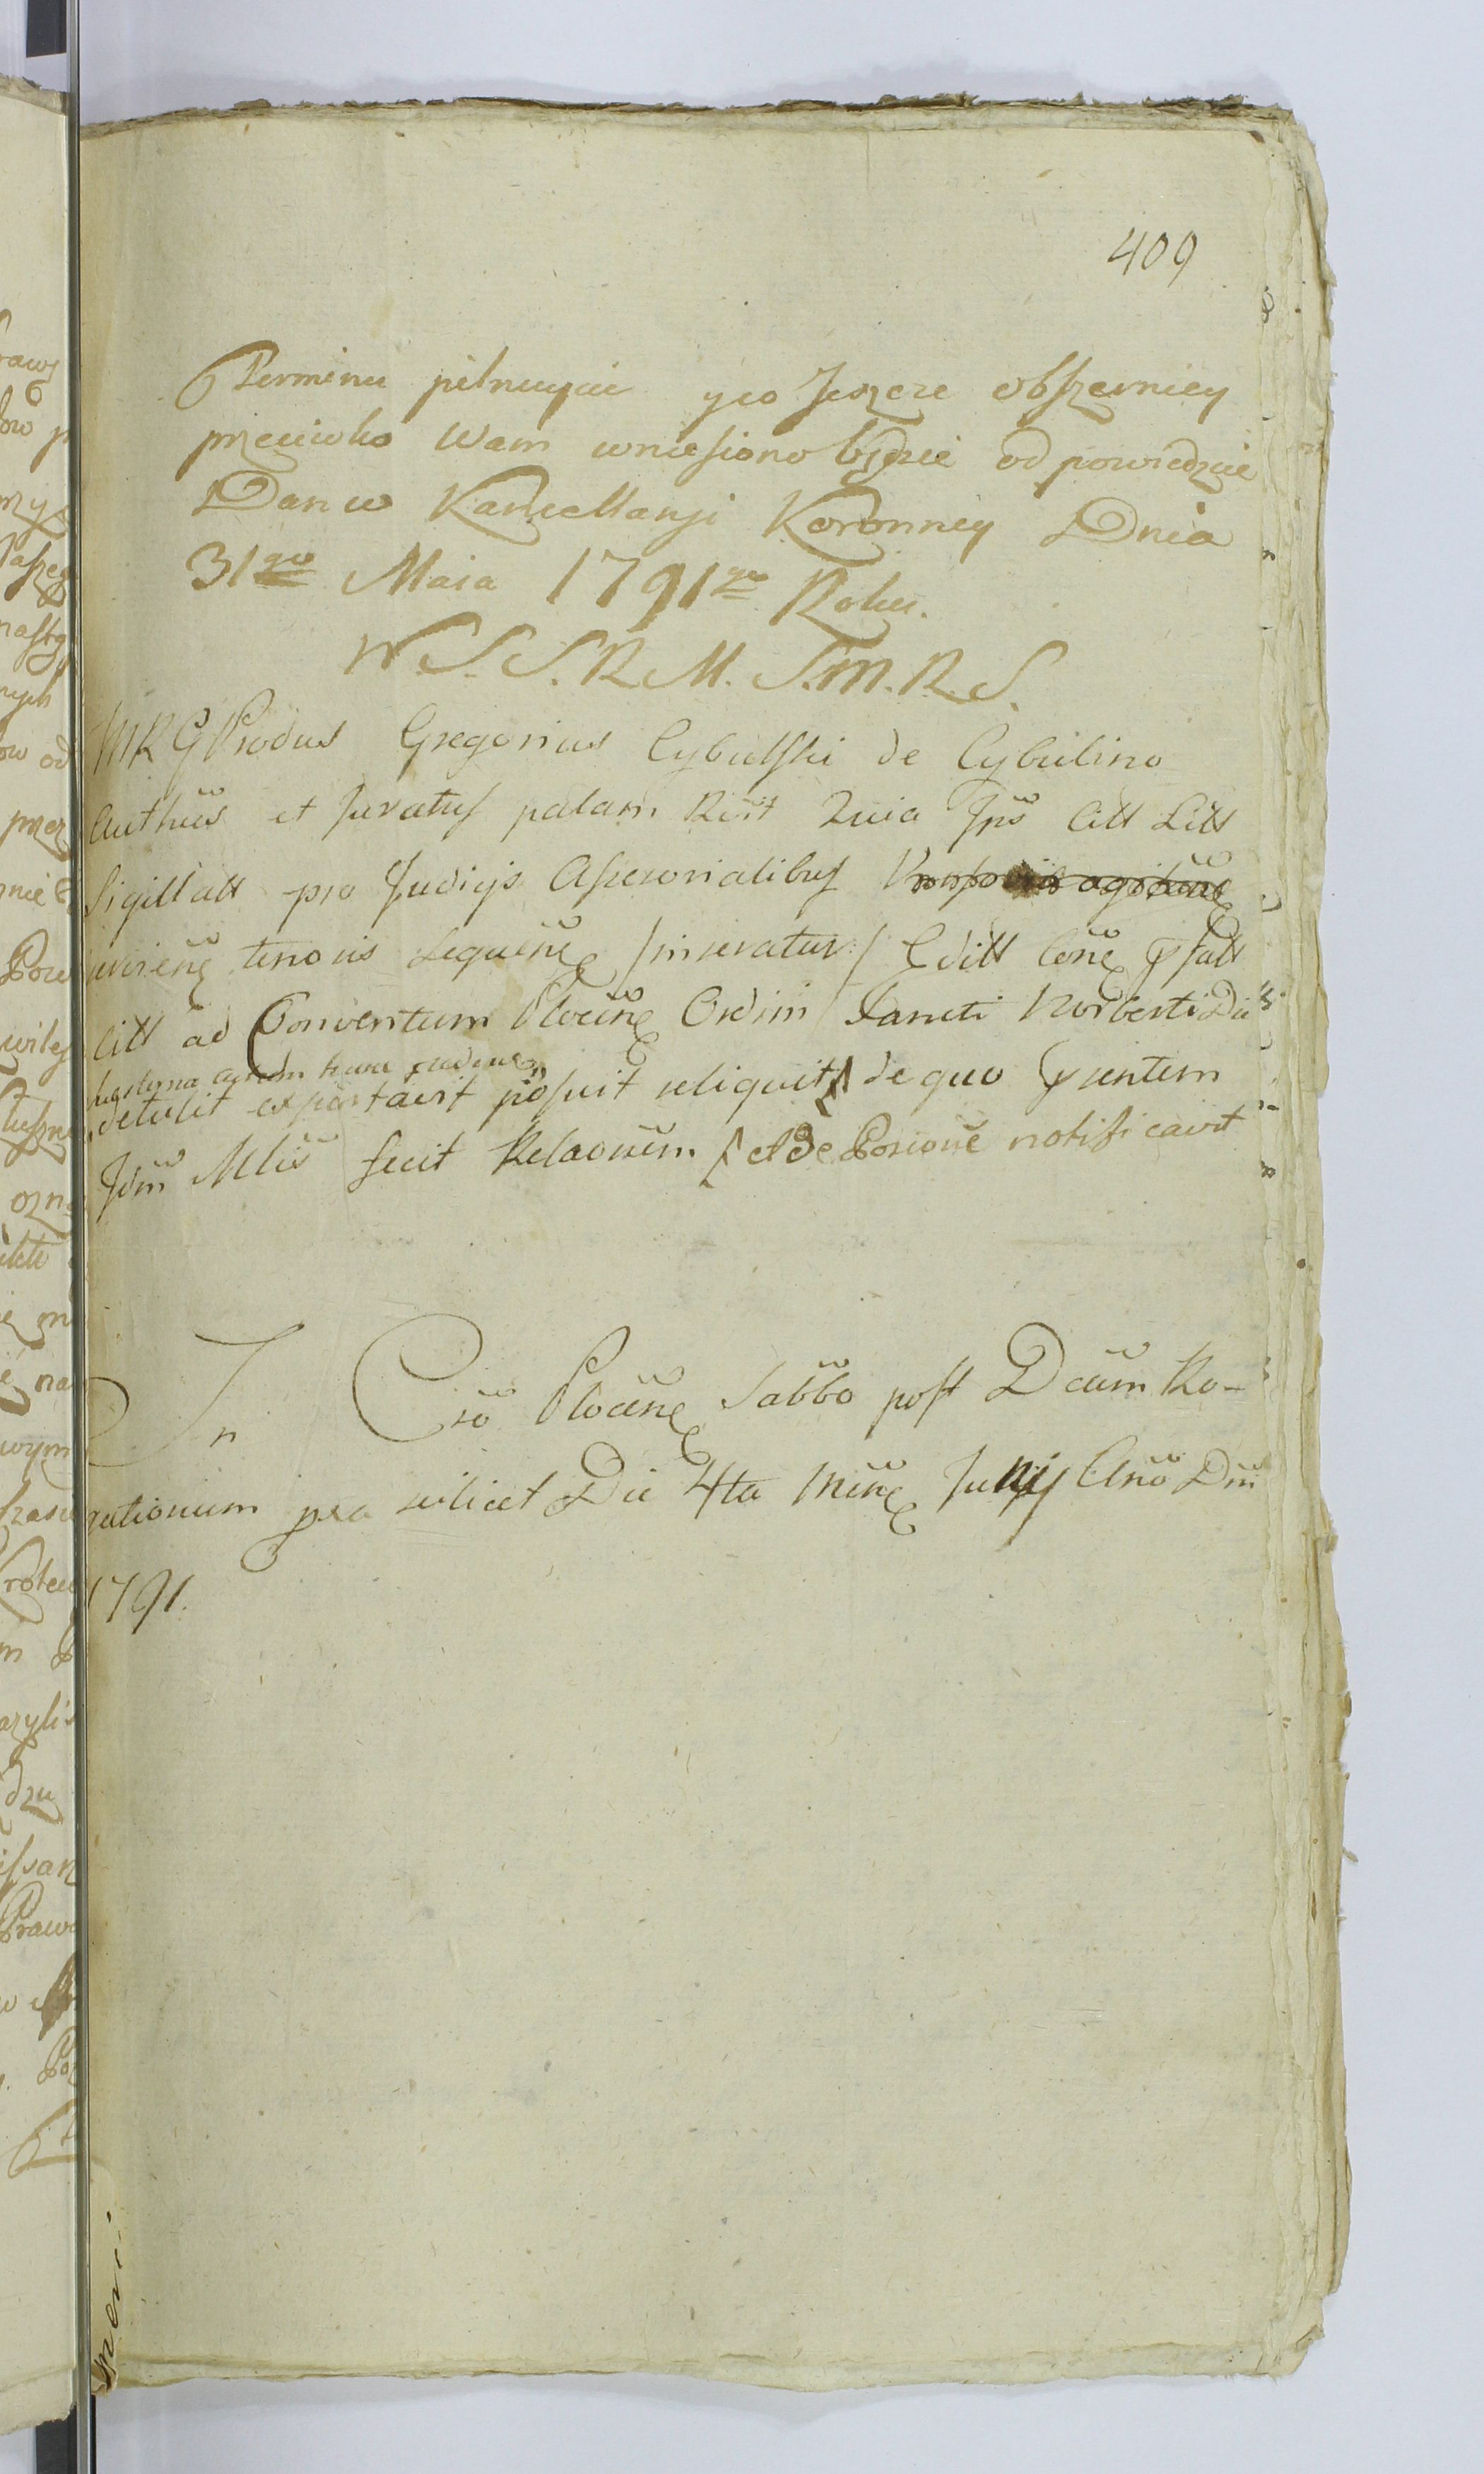 409
Terminu pilnuycie y co Jeszcze obszerniey
przeciwko Wam wniesiono będzie odpowiedzcie
Dan w Kancellaryi Koronney Dnia
31go Maia 1791go Roku.
W. S. S. R. M. S. M. R. S.
MRG Produs Gregorius Cybulski de Cybulino
Authus et Juratus palam Rest Quia Jps Citt Litt
Sigillatt pro Judicijs Assessorialibus
tenoris sequens /inseratur:/ Editt
Citt ad Conventum Plocens Ordinis Sancti Norberti Die
hesterna
detulit exportavit posuit reliquit de quo
Jdm Mlis fecit Relaonem et de Posione notificavit
In Cro Plocens Sabbo post Dcam Ro-
gationum pxa scilicet Die 4ta Mens Junij Ano Dni
1791.